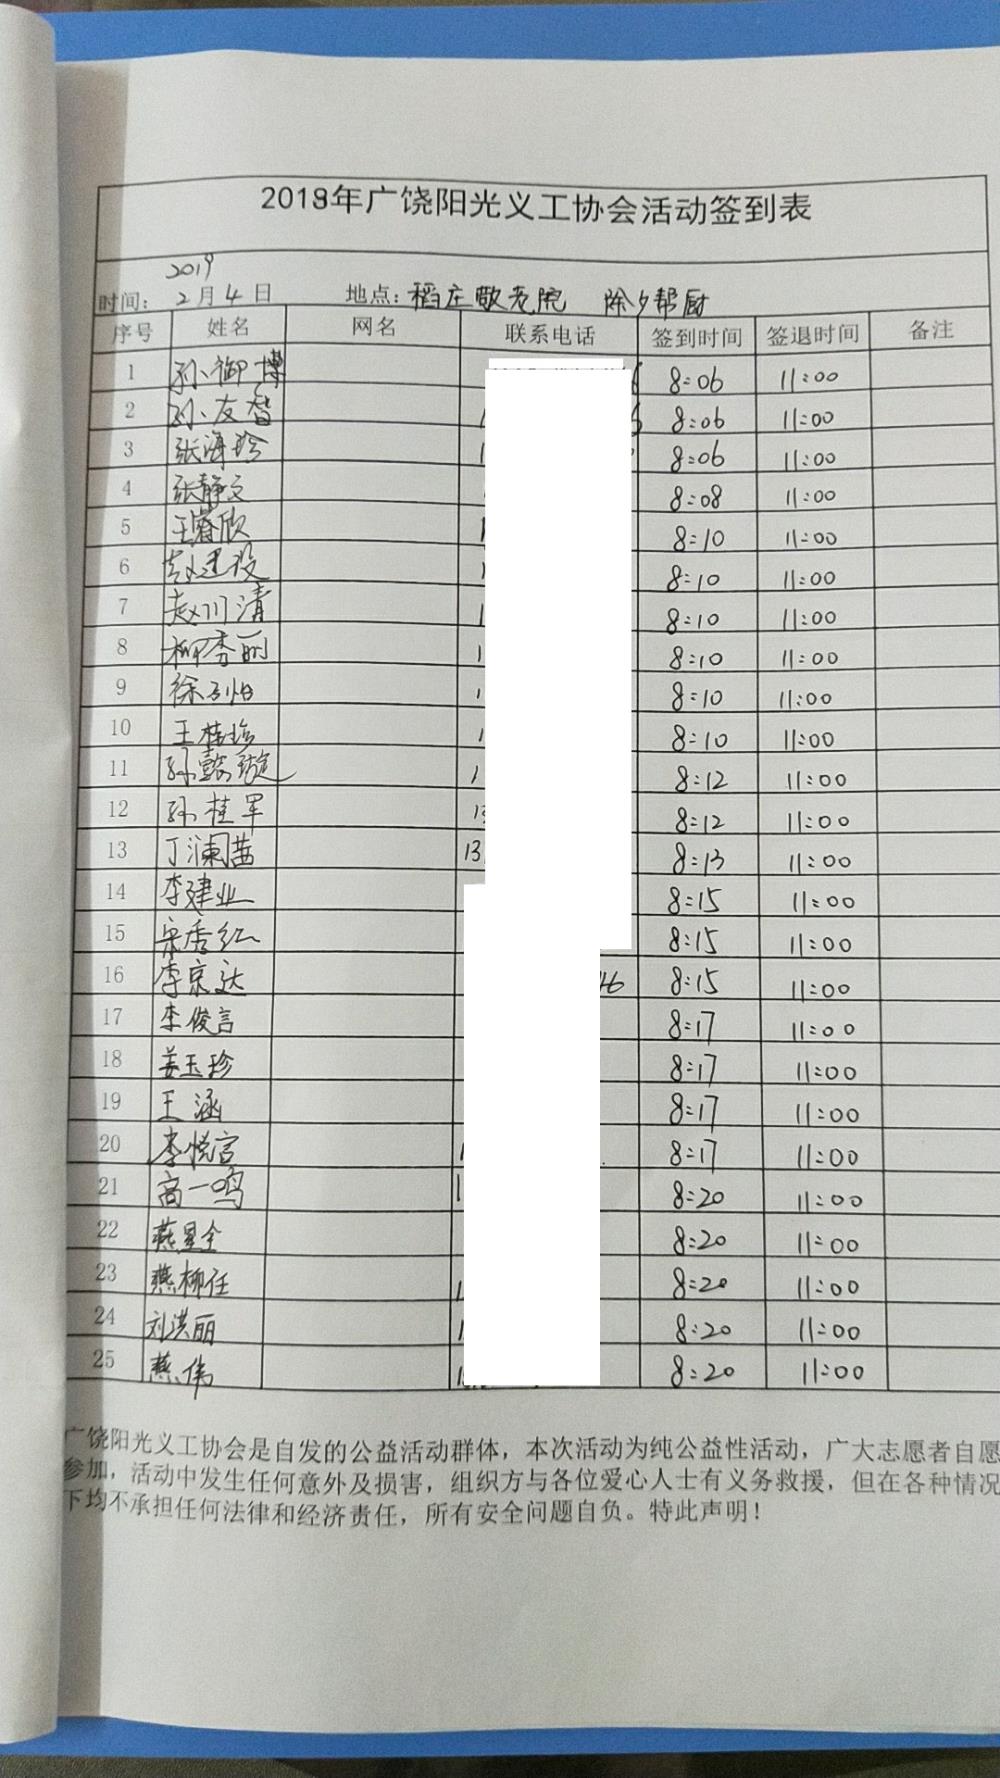 2019年广饶阳光义工协会活动签到表
2019
时间: 2月4日 地点: 稻庄敬老院 除夕帮厨
序号 姓名 网名 联系电话 签到时间 签退时间 备注
1 孙御博 8:06 11:00
2 孙友智 8:06 11:00
3 张海玲 8:06 11:00
4 张静文 8:08 11:00
5 王睿欣 1 8:10 11:00
6 赵建设 8:10 11:00
7 赵川清 1 8:10 11:00
8 柳秀丽 1 8:10 11:00
9 徐子怡 1 8:10 11:00
10 王桂珍 1 8:10 11:00
11 孙懿璇 1 8:12 11:00
12 孙桂军 13 8:12 11:00
13 丁澜茜 13 8:13 11:00
14 李建业 8:15 11:00
15 宋秀红 8:15 11:00
16 李京达 46 8:15 11:00
17 李俊言 8:17 11:00
18 姜玉珍 8:17 11:00
19 王涵 8:17 11:00
20 李悦宫 1 8:17 11:00
21 高一鸣 1 8:20 11:00
22 燕星全 8:20 11:00
23 燕柳任 1 8:20 11:00
24 刘洪丽 1 8:20 11:00
25 燕伟 8:20 11:00
广饶阳光义工协会是自发的公益活动群体，本次活动为纯公益性活动，广大志愿者自愿
参加，活动中发生任何意外及损害，组织方与各位爱心人士有义务救援，但在各种情况
下均不承担任何法律和经济责任，所有安全问题自负。特此声明！